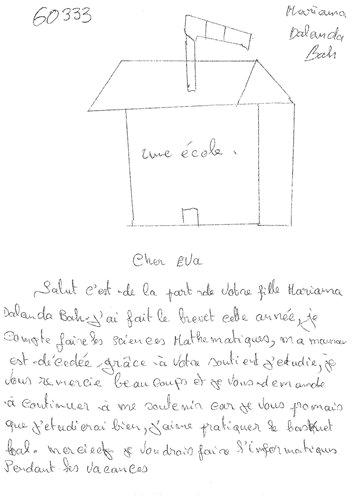 60333
Mariama
Dalanda
Bah
une école.
Cher EVa
Salut c'est de la part de votre fille Mariama
Dalanda Bah j'ai fait le brevet cette année, je
compte faire les sciences Mathematiques, ma maman
est décedée, grâce à votre soutient j'etudie, je
vous remercie beaucoups et je vous demande
à continuer à me soutenir car je vous promais
que j'étudierai bien, j'aime pratiquer le basket
bal. merci et je voudrais faire l'informatiques
Pendant les vacances